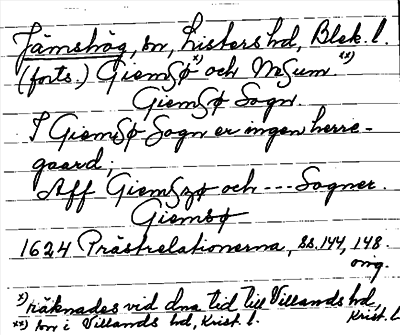 Jämshög, sn, Listers hd, Blek. l.
(forts.) Giemsø x) och Nesum xx)
Giemsø Sogn.
I Giemsø Sogn er ingen herre-
gaard;
Aff Giemszø och --- Sogner.
Giemsø
1624 Prästrelationerna, ss. 144, 148
orig.
x) räknades vid dna tid till Villands hd,
Krist. l.
xx) sn i Villands hd, Krist. l.